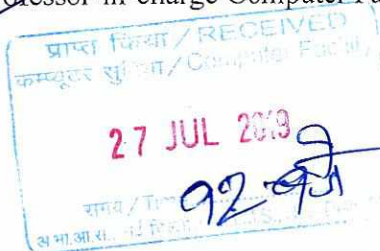 essor in-charge Computer Fa
प्राप्त किया / RECEIVED
कम्प्यूटर सुविधा / Computer Facility
27 JUL 2019
समय / Time
१२ बजे
अ.भा.आ.सं., नई दिल्ली